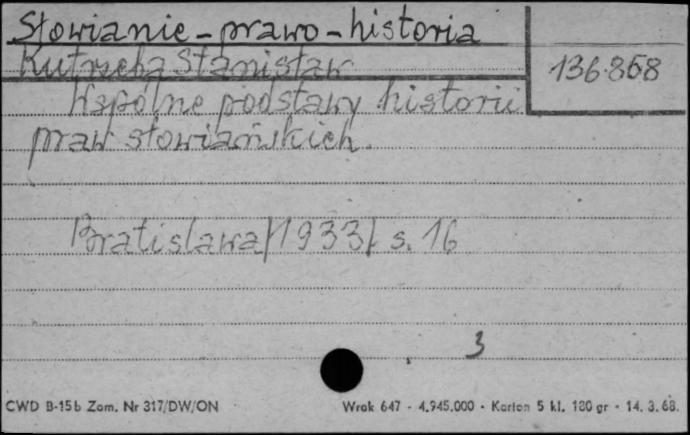 Słowianie - prawo - historia
Kutrzeba Stanisław
136.868
Wspólne podstawy historii
praw słowiańskich.
Bratislava /1933/ s. 16
3
CWD B-15b Zam. Nr 317/DW/ON
Wrak 647 - 4.945.000 - Karton 5 kl. 180 gr - 14. 3. 68.